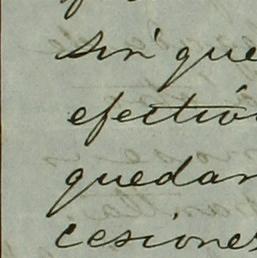 sin que
efectiv
quedar
cesiones